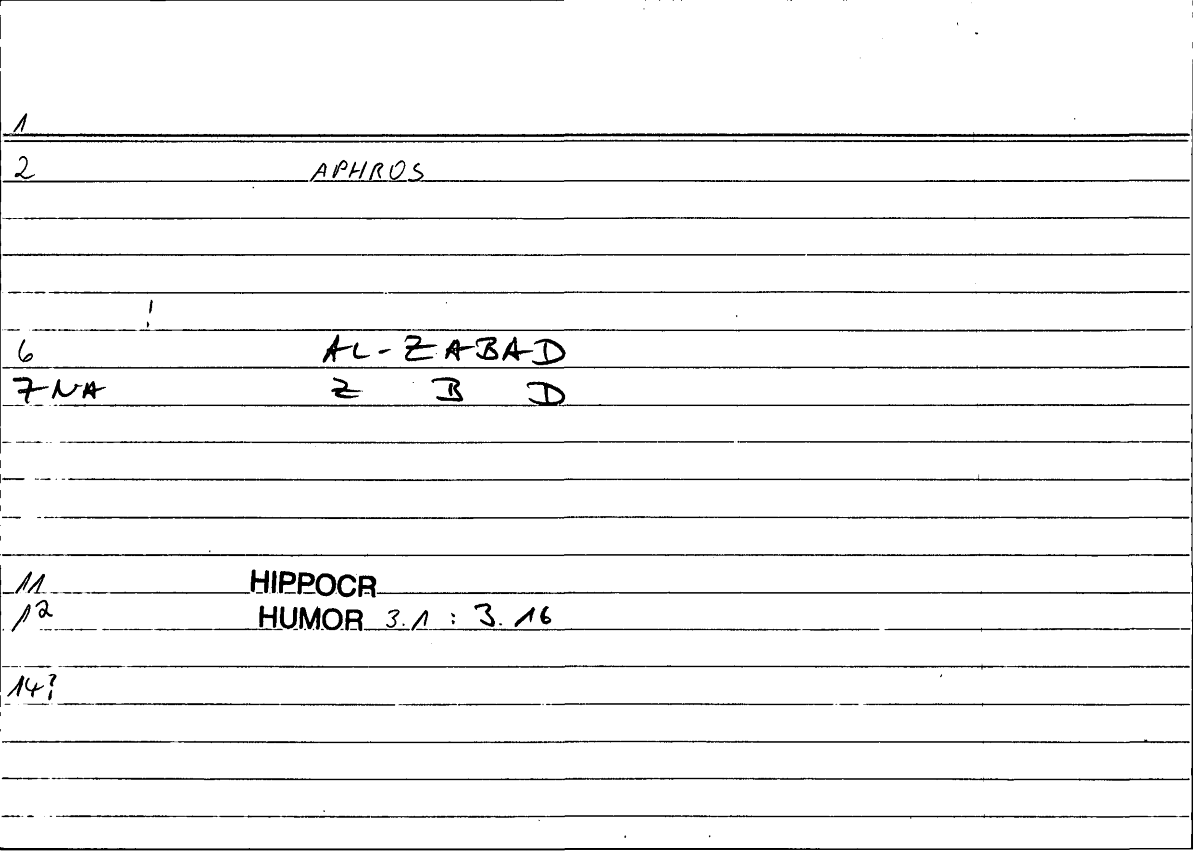 1
2 APHROS
!
6 AL-ZABAD
7 NA Z B D
11 HIPPOCR
12 HUMOR 3.1 : 3.16
14?